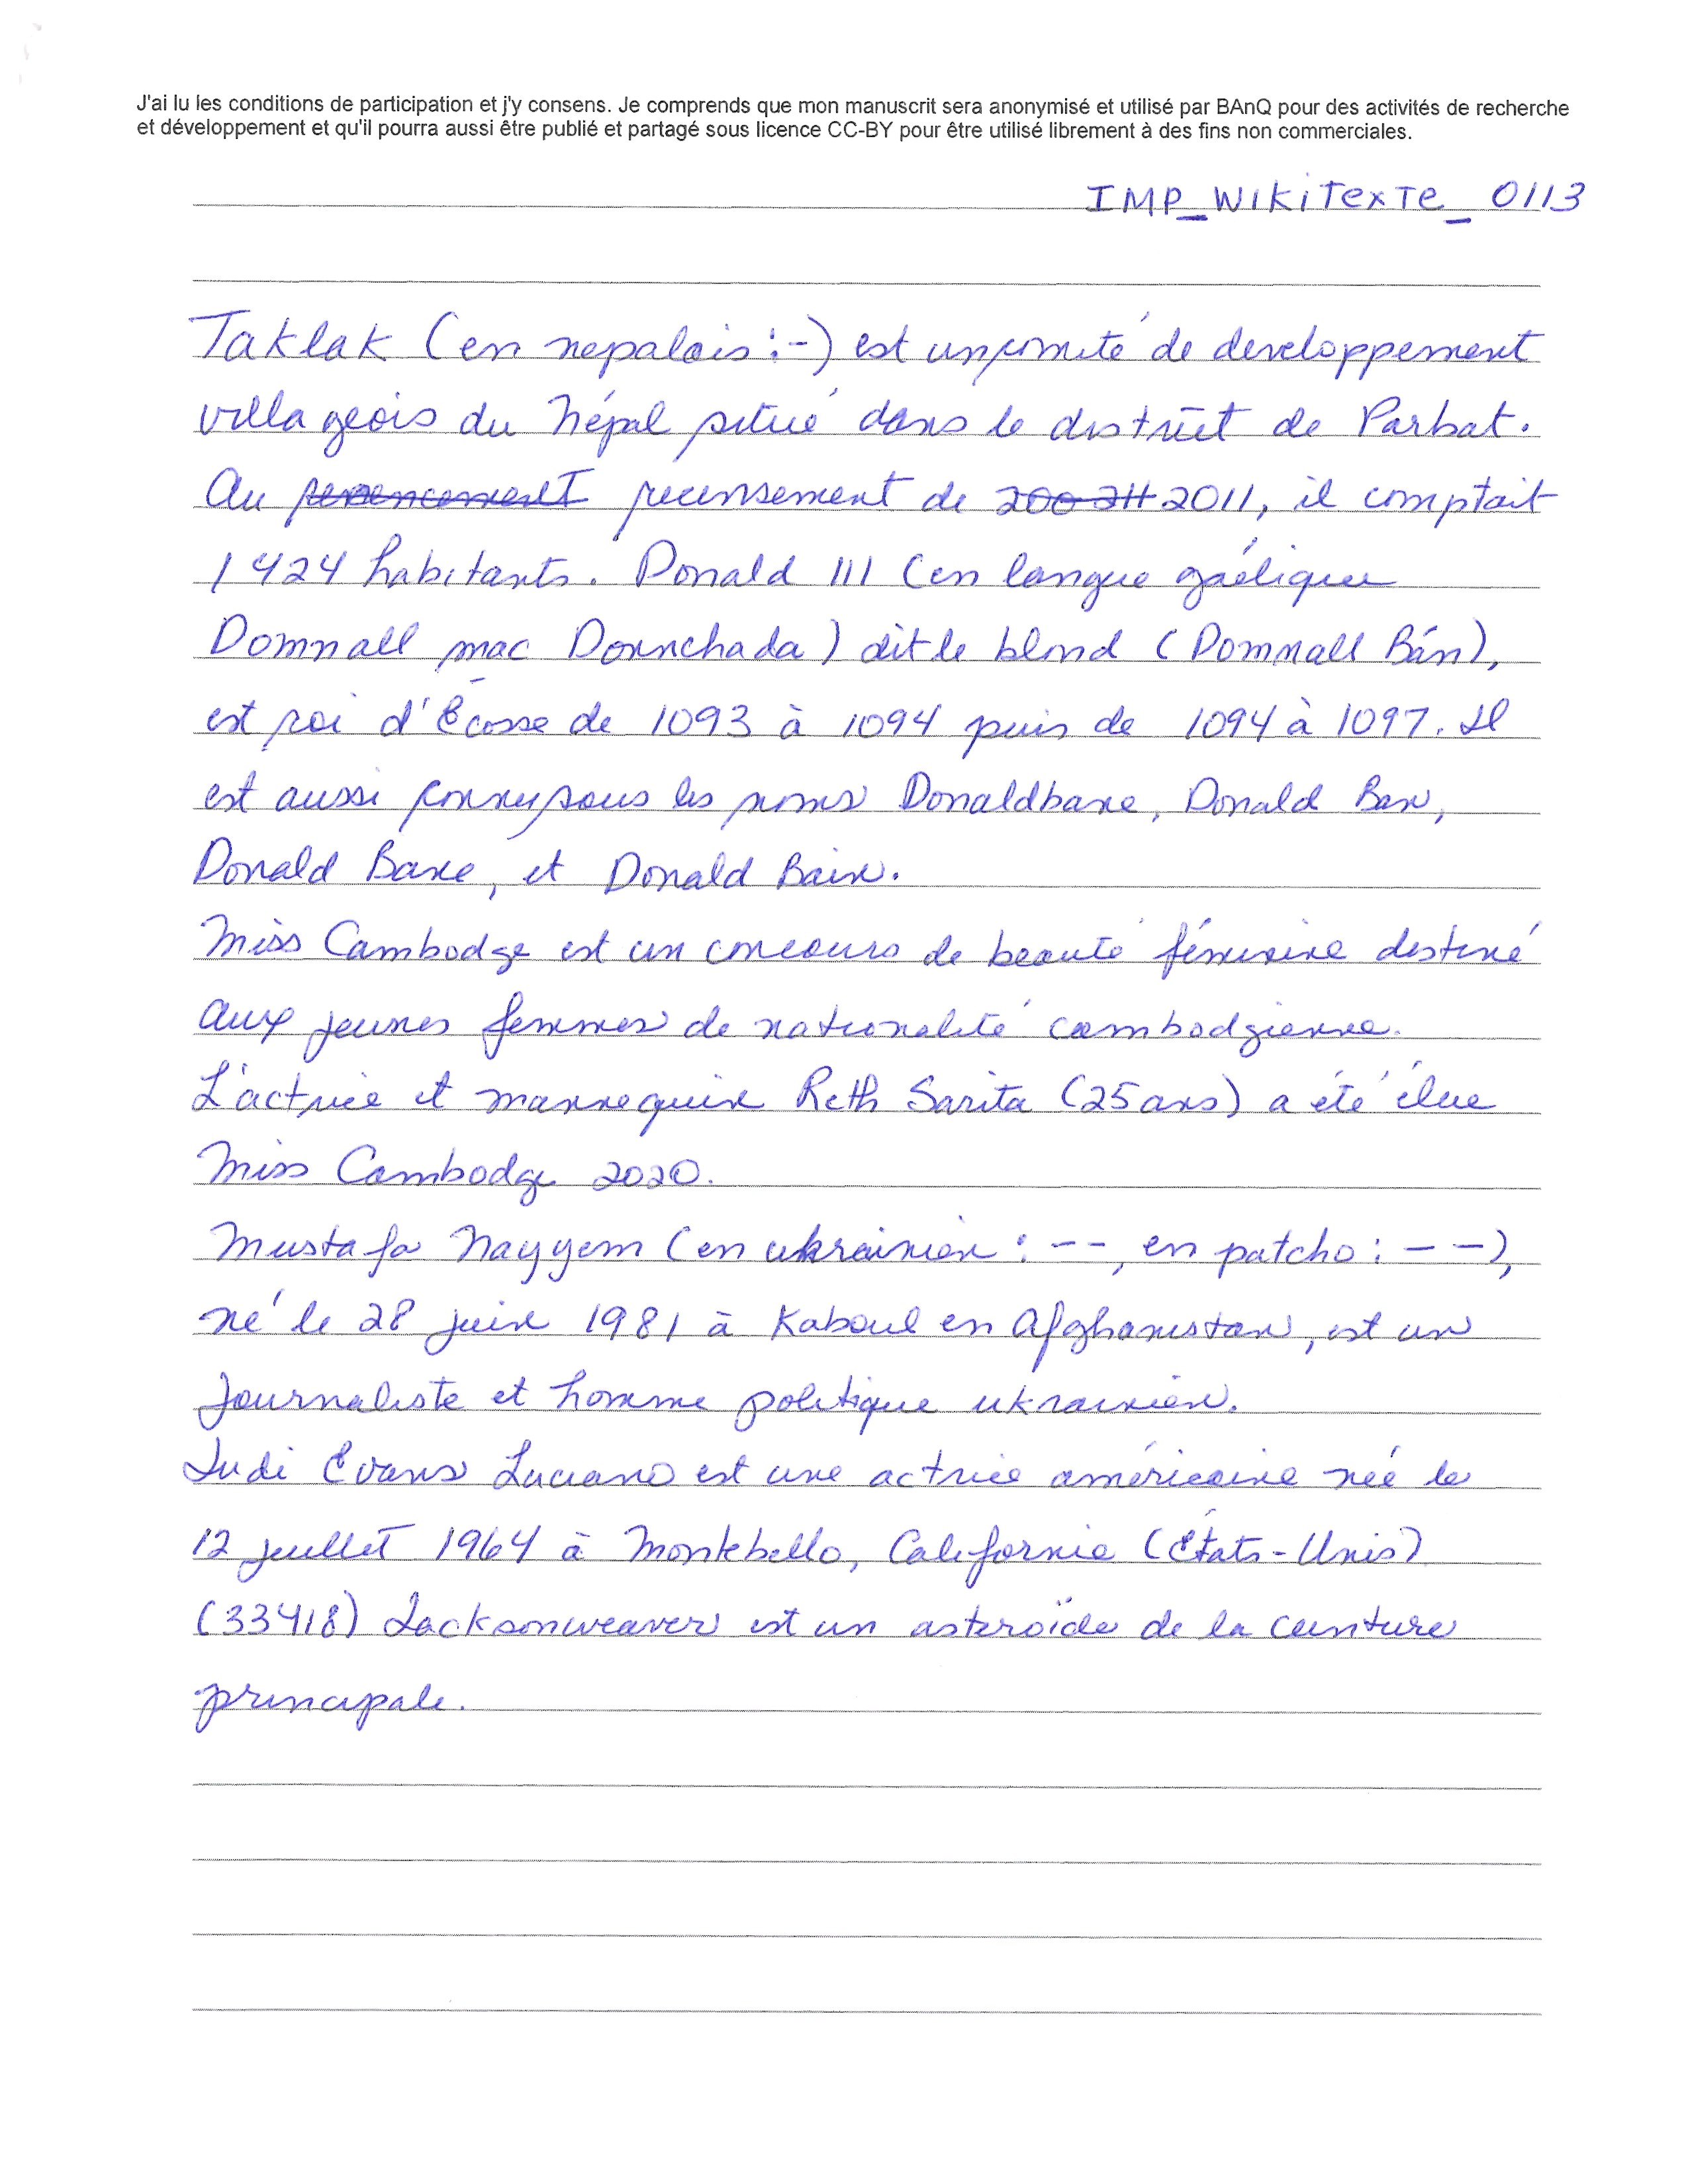 J'ai lu les conditions de participation et j'y consens. Je comprends que mon manuscrit sera anonymisé et utilisé par BAnQ pour des activités de recherche
et développement et qu'il pourra aussi être publié et partagé sous licence CC-BY pour être utilisé librement à des fins non commerciales.
IMP_WIKITEXTE_0113
Taklak (en nepalais :-) est un comité de developpement
villageois du Népal situé dans le district de Parbat.
Au recensement de 2011, il comptait
1 424 habitants. Donald III (en langue gaélique
Domnall mac Donnchada) dit le blond (Domnall Bán),
est roi d'Écosse de 1093 à 1094 puis de 1094 à 1097. Il
est aussi connu sous les noms Donaldbane, Donald Ban,
Donald Bane, et Donald Bain.
Miss Cambodge est un concours de beauté féminine destiné
aux jeunes femmes de nationalité cambodgienne.
L'actrice et mannequin Reth Sarita (25 ans) a été élue
Miss Cambodge 2020.
Mustafa Nayyem (en ukrainien : --, en patcho : --),
né le 28 juin 1981 à Kaboul en Afghanistan, est un
journaliste et homme politique ukrainien.
Judi Evans Luciano est une actrice américaine née le
12 juillet 1964 à Montebello, Californie (États-Unis)
(33418) Jacksonweaver est un astéroïde de la ceinture
principale.